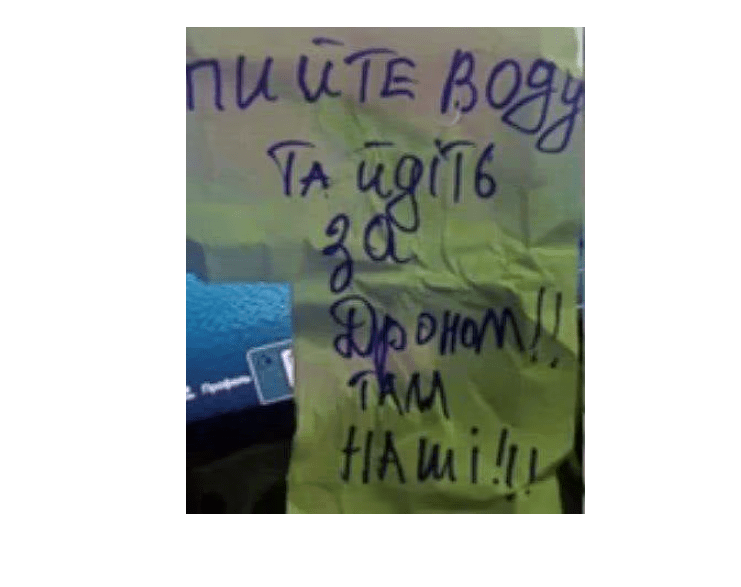 ПИЙТЕ ВОДУ
ТА ЙДІТЬ
ЗА
ДРОНОМ!!
ТАМ
НАШІ!!!
Профиль